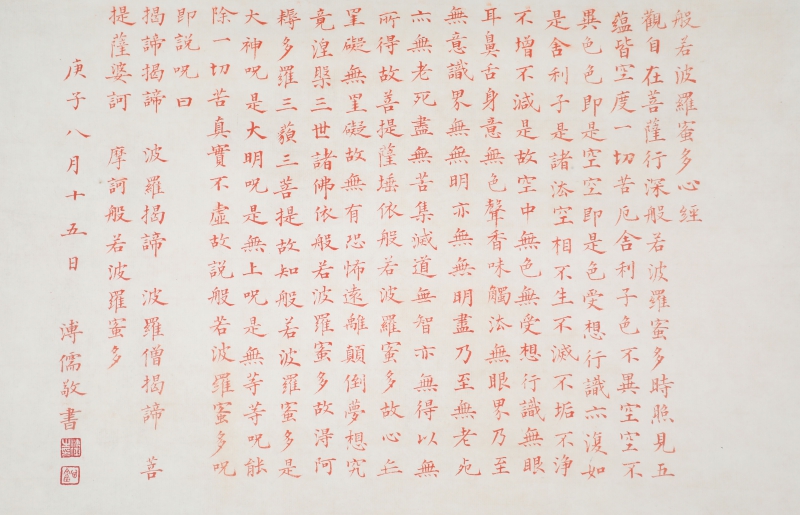 般若波羅蜜多心經
觀自在菩薩行深般若波羅蜜多時照見五
蘊皆空度一切苦厄舍利子色不異空空不
異色色即是空空即是色受想行識亦復如
是舍利子是諸法空相不生不滅不垢不淨
不增不減是故空中無色無受想行識無眼
耳鼻舌身意無色聲香味觸法無眼界乃至
無意識界無無明亦無無明盡乃至無老死
亦無老死盡無苦集滅道無智亦無得以無
所得故菩提薩埵依般若波羅蜜多故心無
罣礙無罣礙故無有恐怖遠離顛倒夢想究
竟涅槃三世諸佛依般若波羅蜜多故得阿
耨多羅三藐三菩提故知般若波羅蜜多是
大神呪是大明呪是無上呪是無等等呪能
除一切苦真實不虛故說般若波羅蜜多呪
即說呪曰
揭諦揭諦 波羅揭諦 波羅僧揭諦 菩
提薩婆訶 摩訶般若波羅蜜多
庚子八月十五日 溥儒敬書